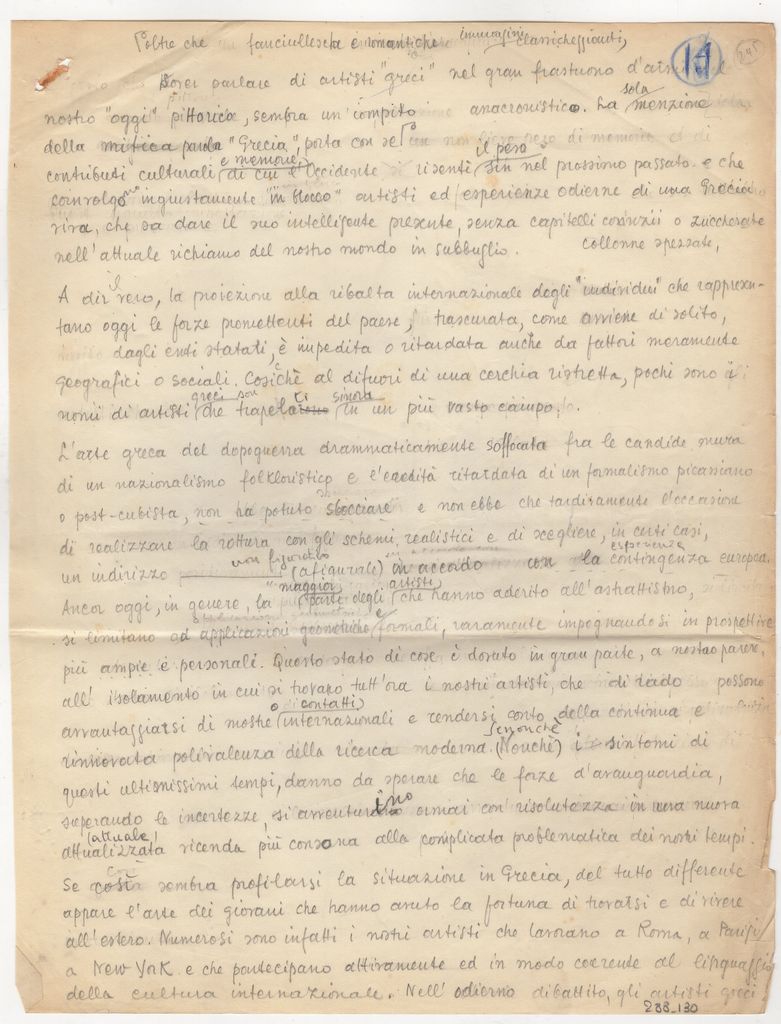 Poltre che fanciullesche e romantiche immagini classicheggianti,
14
Dover parlare di artisti "greci" nel gran frastuono
nostro "oggi" pittorico, sembra un compito anacronistico. La sola menzione
della mitica parola "Grecia", porta con se un non lieve peso di memorie ed di
contributi culturali e memorie di cui l'Occidente risentì il peso sin nel prossimo passato. e che
coinvolge ingiustamente "in blocco" artisti ed esperienze odierne di una Grecia
viva, che sa dare il suo intelligente presente, senza capitelli corinzii o zuccherate
nell'attuale richiamo del nostro mondo in subbuglio. collonne spezzate,
A dir il vero, la proiezione alla ribalta internazionale degli "individui" che rappresen-
tano oggi le forze promettenti del paese, trascurata, come avviene di solito,
dagli enti statali, è impedita o ritardata anche da fattori meramente
geografici o sociali. Cosichè al difuori di una cerchia ristretta, pochi sono i
nomi di artisti greci son che trapelati sinora in un più vasto campo.
L'arte greca del dopoguerra drammaticamente soffocata fra le candide mura
di un nazionalismo folkloristico e l'eredità ritardata di un formalismo picassiano
o post-cubista, non ha potuto sbocciare e non ebbe che tardivamente l'occasione
di realizzare la rottura con gli schemi realistici e di scegliere, in certi casi,
un indirizzo non figurativo (afigurale) in accordo con la esperienza contingenza europea.
Ancor oggi, in genere, la maggior parte degli artisti, che hanno aderito all'astrattismo,
si limitano ad applicazioni geometriche e formali, raramente impegnandosi in prospettive
più ampie e personali. Questo stato di cose è dovuto in gran parte, a nostro parere,
all'isolamento in cui si trovano tutt'ora i nostri artisti, che di rado possono
avvantaggiarsi di mostre o contatti internazionali e rendersi conto della continua e
rinnovata polivalenza della ricerca moderna. Sennonchè (Nonchè) i sintomi di
questi ultimissimi tempi, danno da sperare che le forze d'avanguardia,
superando le incertezze, si avventurino ormai con risolutezza in una nuova
(attuale) attualizzata vicenda più consona alla complicata problematica dei nostri tempi.
Se così sembra profilarsi la situazione in Grecia, del tutto differente
appare l'arte dei giovani che hanno avuto la fortuna di trovarsi e di vivere
all'estero. Numerosi sono infatti i nostri artisti che lavorano a Roma, a Parigi
a New York e che partecipano attivamente ed in modo coerente al linguaggio
della cultura internazionale. Nell'odierno dibattito, gli artisti greci
288_130